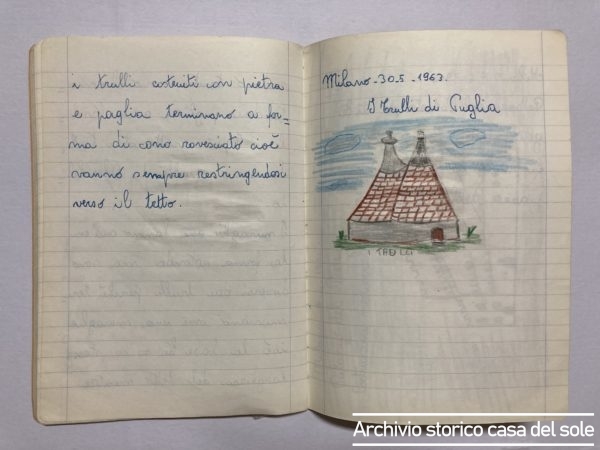 i trulli costruiti con pietra
e paglia terminano a for=
ma di cono rovesciato cioè
vanno sempre restringendosi
verso il tetto.
Milano-30.5-1963.
I Trulli di Puglia
I TRULLI
Archivio storico casa del sole